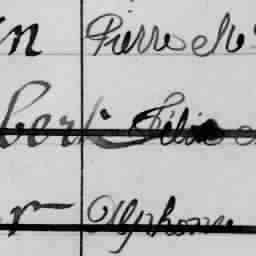 in Pierre
bert Félix
r Alphonse